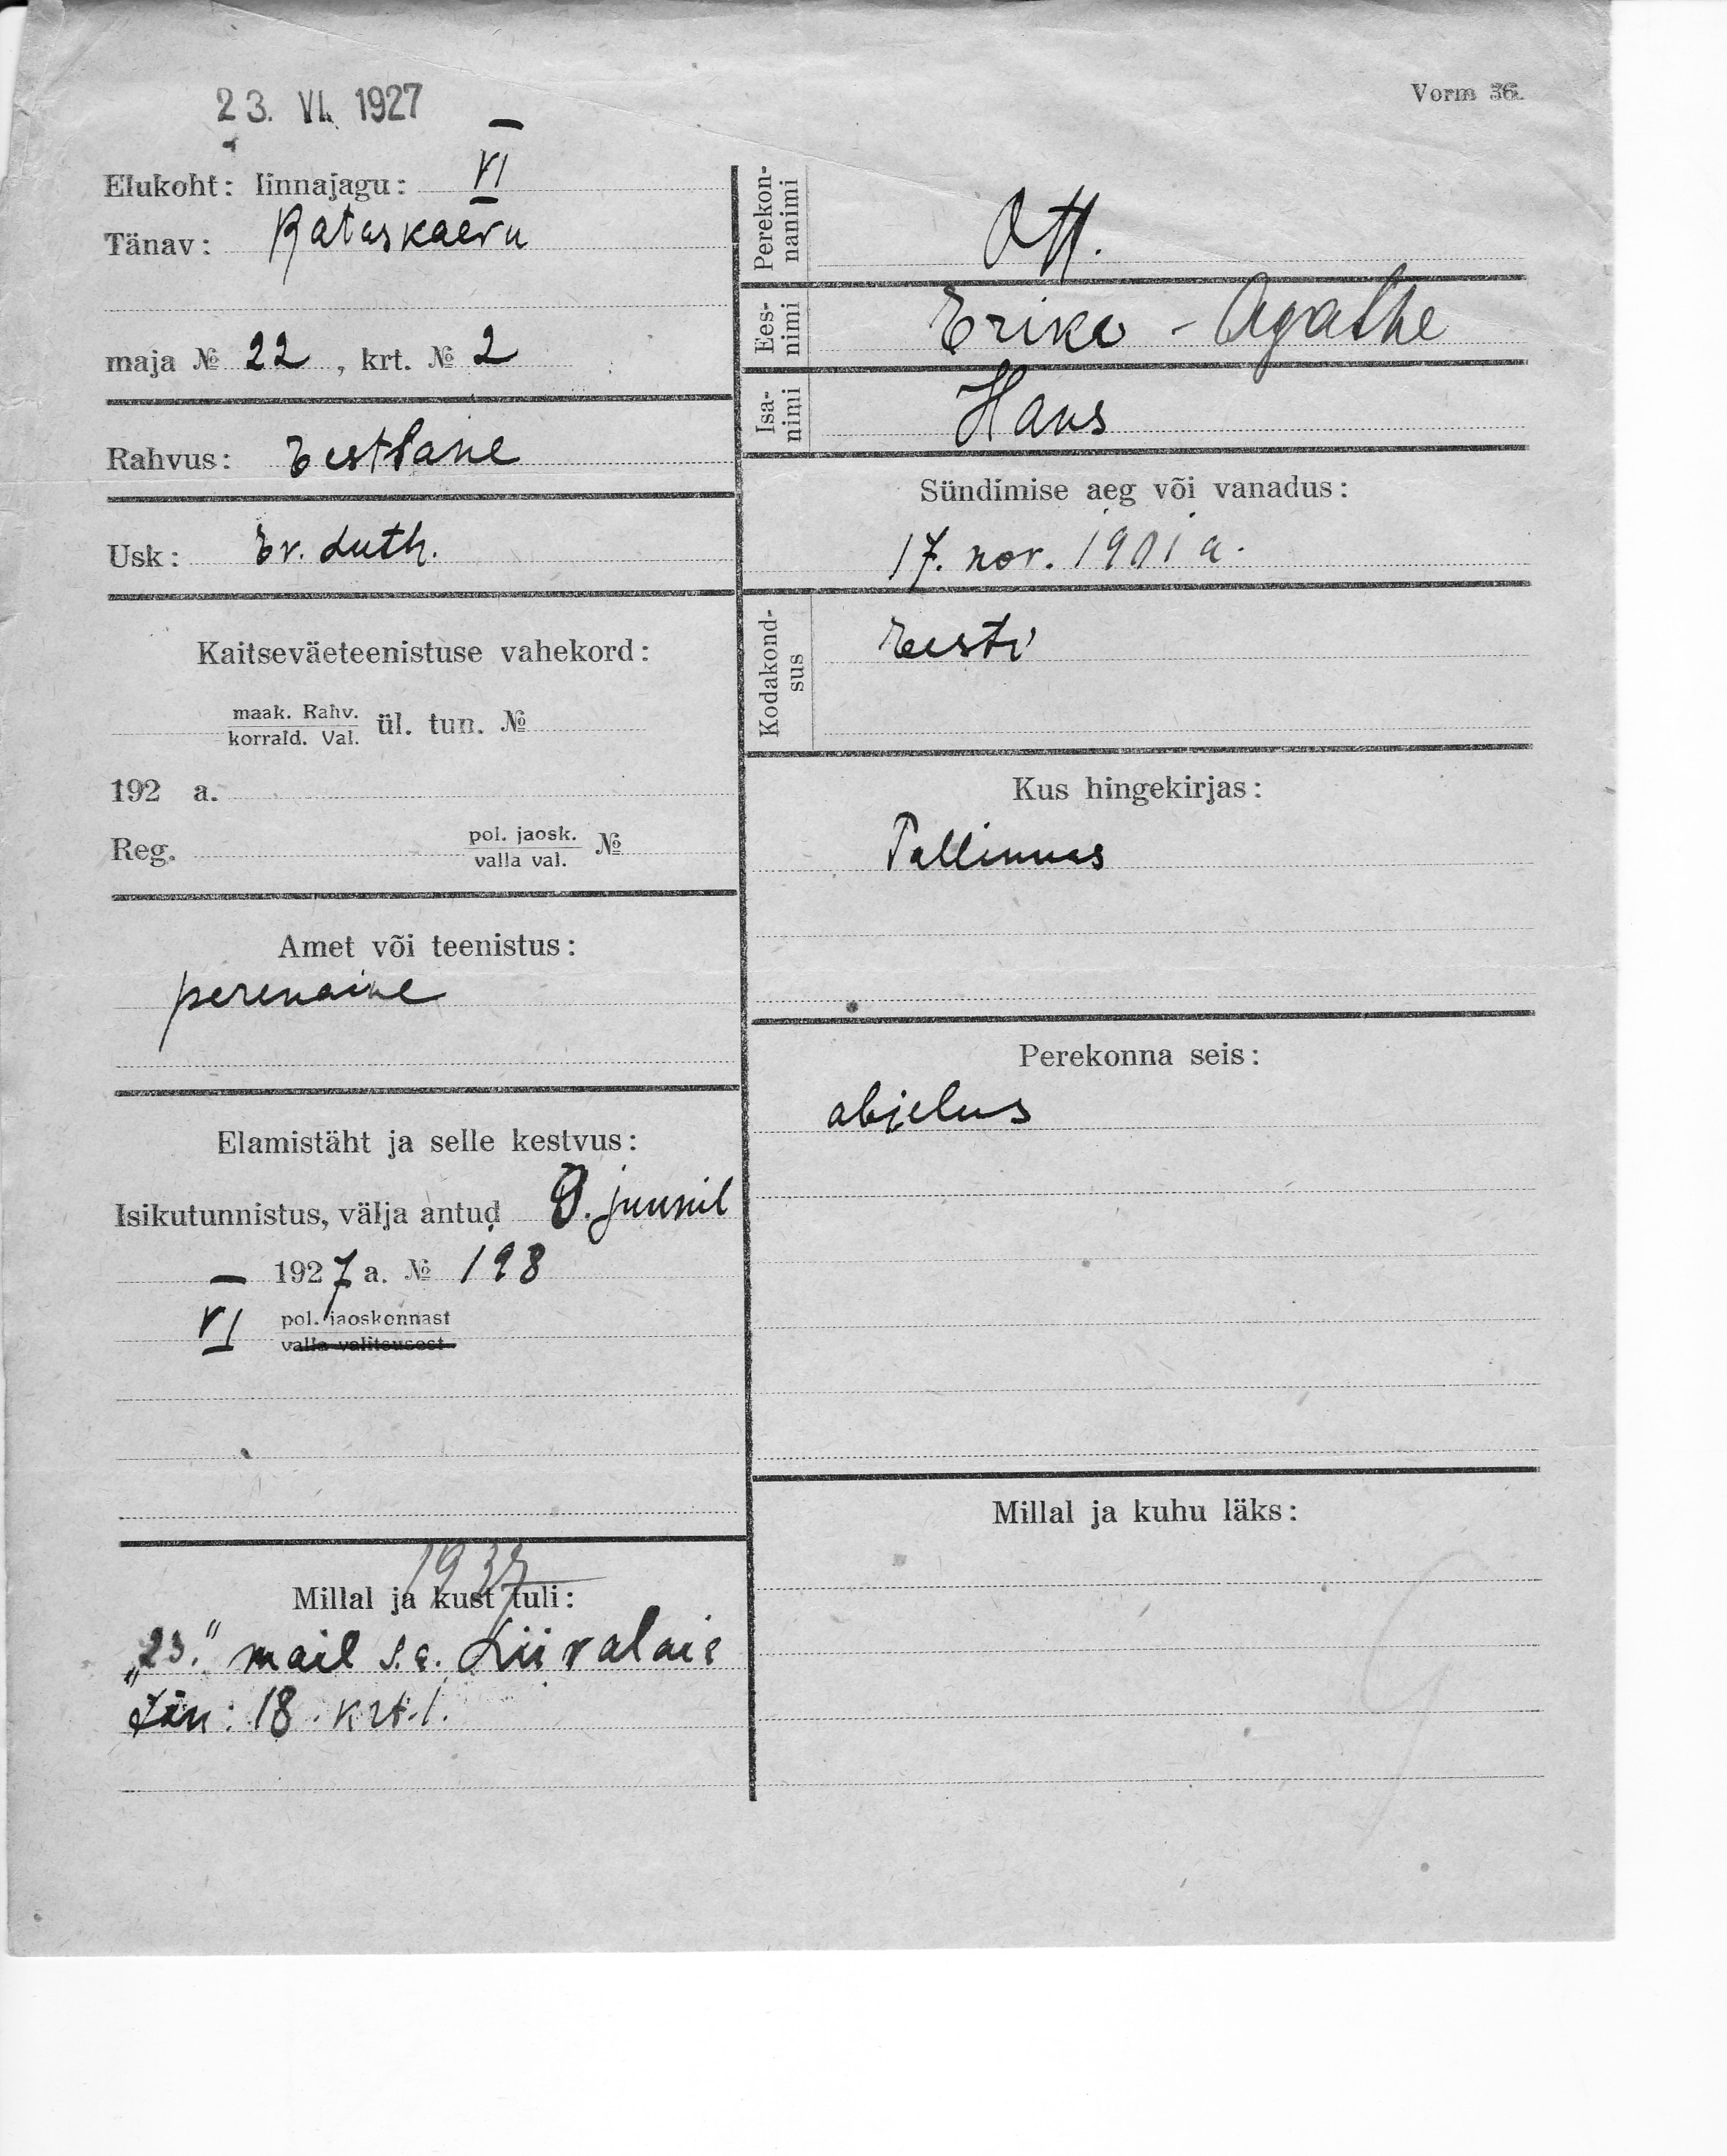 23. VI. 1927
Vorm 36.
Elukoht: linnajagu: VI
Tänav: Rataskaevu
maja № 22, krt. № 2
Rahvus: Eestlane
Usk: Ev. Luth.
Kaitseväeteenistuse vahekord:
maak. Rahv.
korrald. Val. ül. tun. №
192 a.
Reg. pol. jaosk. №
valla val.
Amet või teenistus:
perenaine
Elamistäht ja selle kestvus:
Isikutunnistus, välja antud juunil
1927 a. № 198
VI pol. jaoskonnast
valla valitsusest
1937
Millal ja kust tuli:
„23.“ mail s.a. Liivalaia
tän: 18. krt. 1.
Perekon-
nanimi Ott.
Ees-
nimi Erika - Agathe
Isa-
nimi Hans
Sündimise aeg või vanadus:
17. nov. 1901 a.
Kodakond-
sus Eesti
Kus hingekirjas:
Tallinnas
Perekonna seis:
abielus
Millal ja kuhu läks: